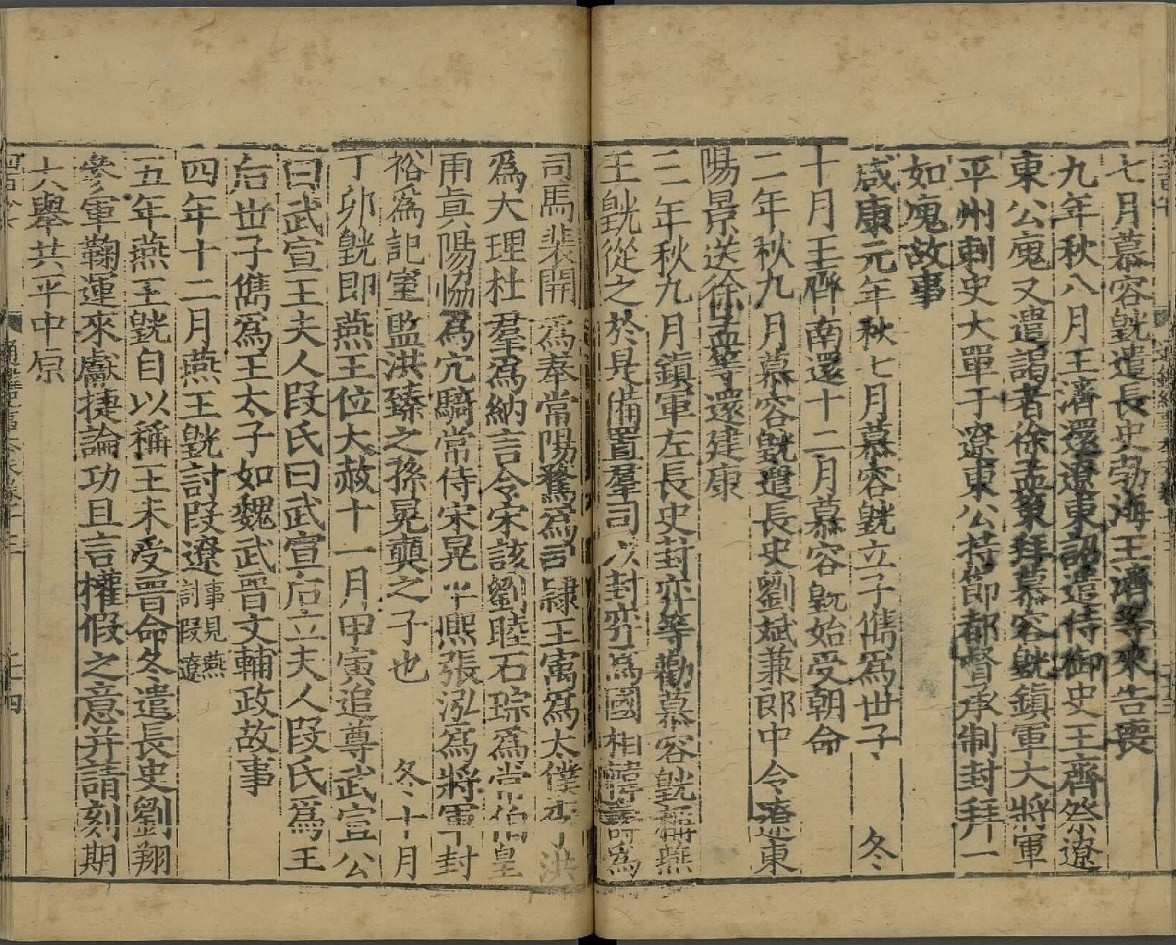 七月慕容皝遣長史勃海王濟等來告喪
九年秋八月王濟還遼東詔遣侍御史王齊祭遼
東公廆又遣謁者徐孟策拜慕容皝鎮軍大將軍
平州刺史大單于遼東公持節都督承制封拜一
如廆故事
咸康元年秋七月慕容皝立子儁爲世子 冬
十月王齊南還十二月慕容皝始受朝命
二年秋九月慕容皝遣長史劉斌兼郎中令遼東
陽景送徐孟等還建康
三年秋九月鎮軍左長史封弈等勸慕容皝稱燕
王皝從之於是備置羣司以封弈爲國相韓壽爲
司馬裴開爲奉常陽騖爲司隸王㝢爲太僕李洪
爲大理杜羣爲納言令宋該劉睦石琮爲常伯皇
甫真陽協爲宂騎常侍宋晃平熙張泓爲將軍封
裕爲記室監洪臻之孫晃奭之子也 冬十月
丁卯皝即燕王位大赦十一月甲寅追尊武宣公
曰武宣王夫人段氏曰武宣后立夫人段氏爲王
后世子儁爲王太子如魏武晋文輔政故事
四年十二月燕王皝討段遼事見燕討段遼
五年燕王皝自以稱王未受晋命冬遣長史劉翔
參軍鞠運來獻捷論功且言權假之意并請刻期
大舉共平中原